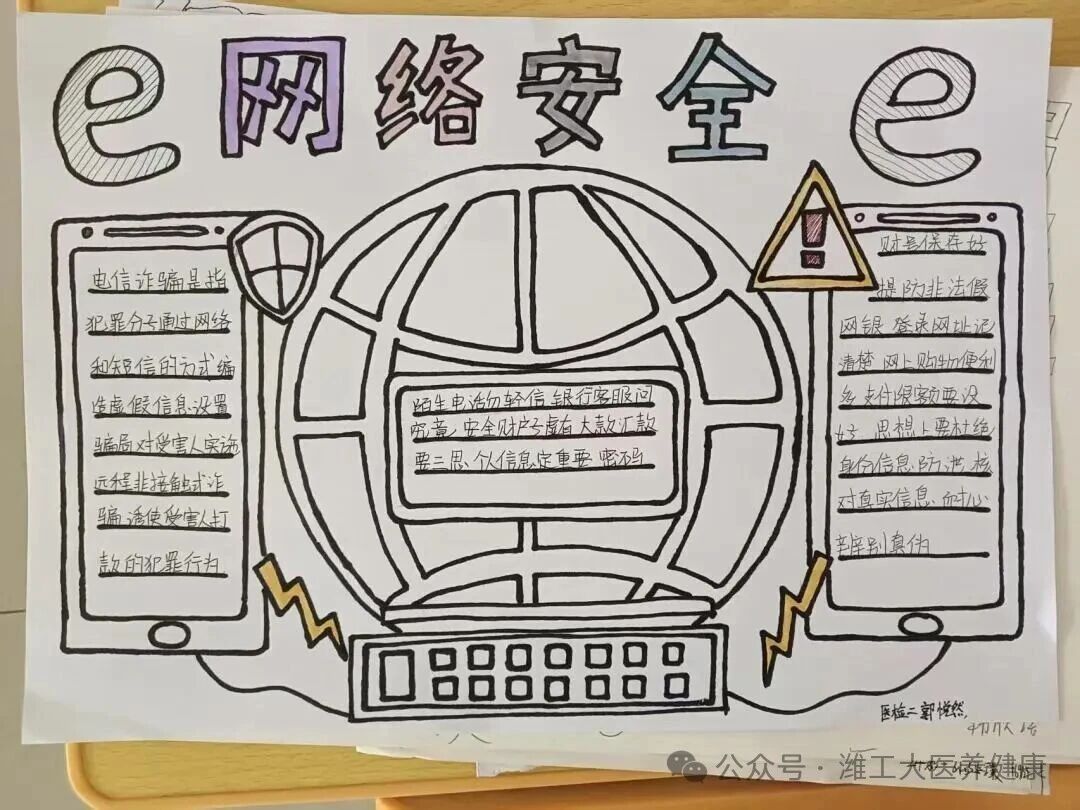 e 网络安全 e
电信诈骗是指
犯罪分子通过网络
和短信的方式编
造虚假信息设置
骗局对受害人实施
远程非接触式诈
骗 诱使受害人打
款的犯罪行为
陌生电话勿轻信 银行客服问
究竟, 安全账户子虚有 大款汇款
要三思 个人信息定重要 密码
财号保存好
提防非法假
网银 登录网址记
清楚 网上购物便利
多 支付限额要设
好 思想上要杜绝
身份信息防泄 核
对真实信息 耐心
辨别真伪
医检二 郭悦然
公众号 · 潍工大医养健康